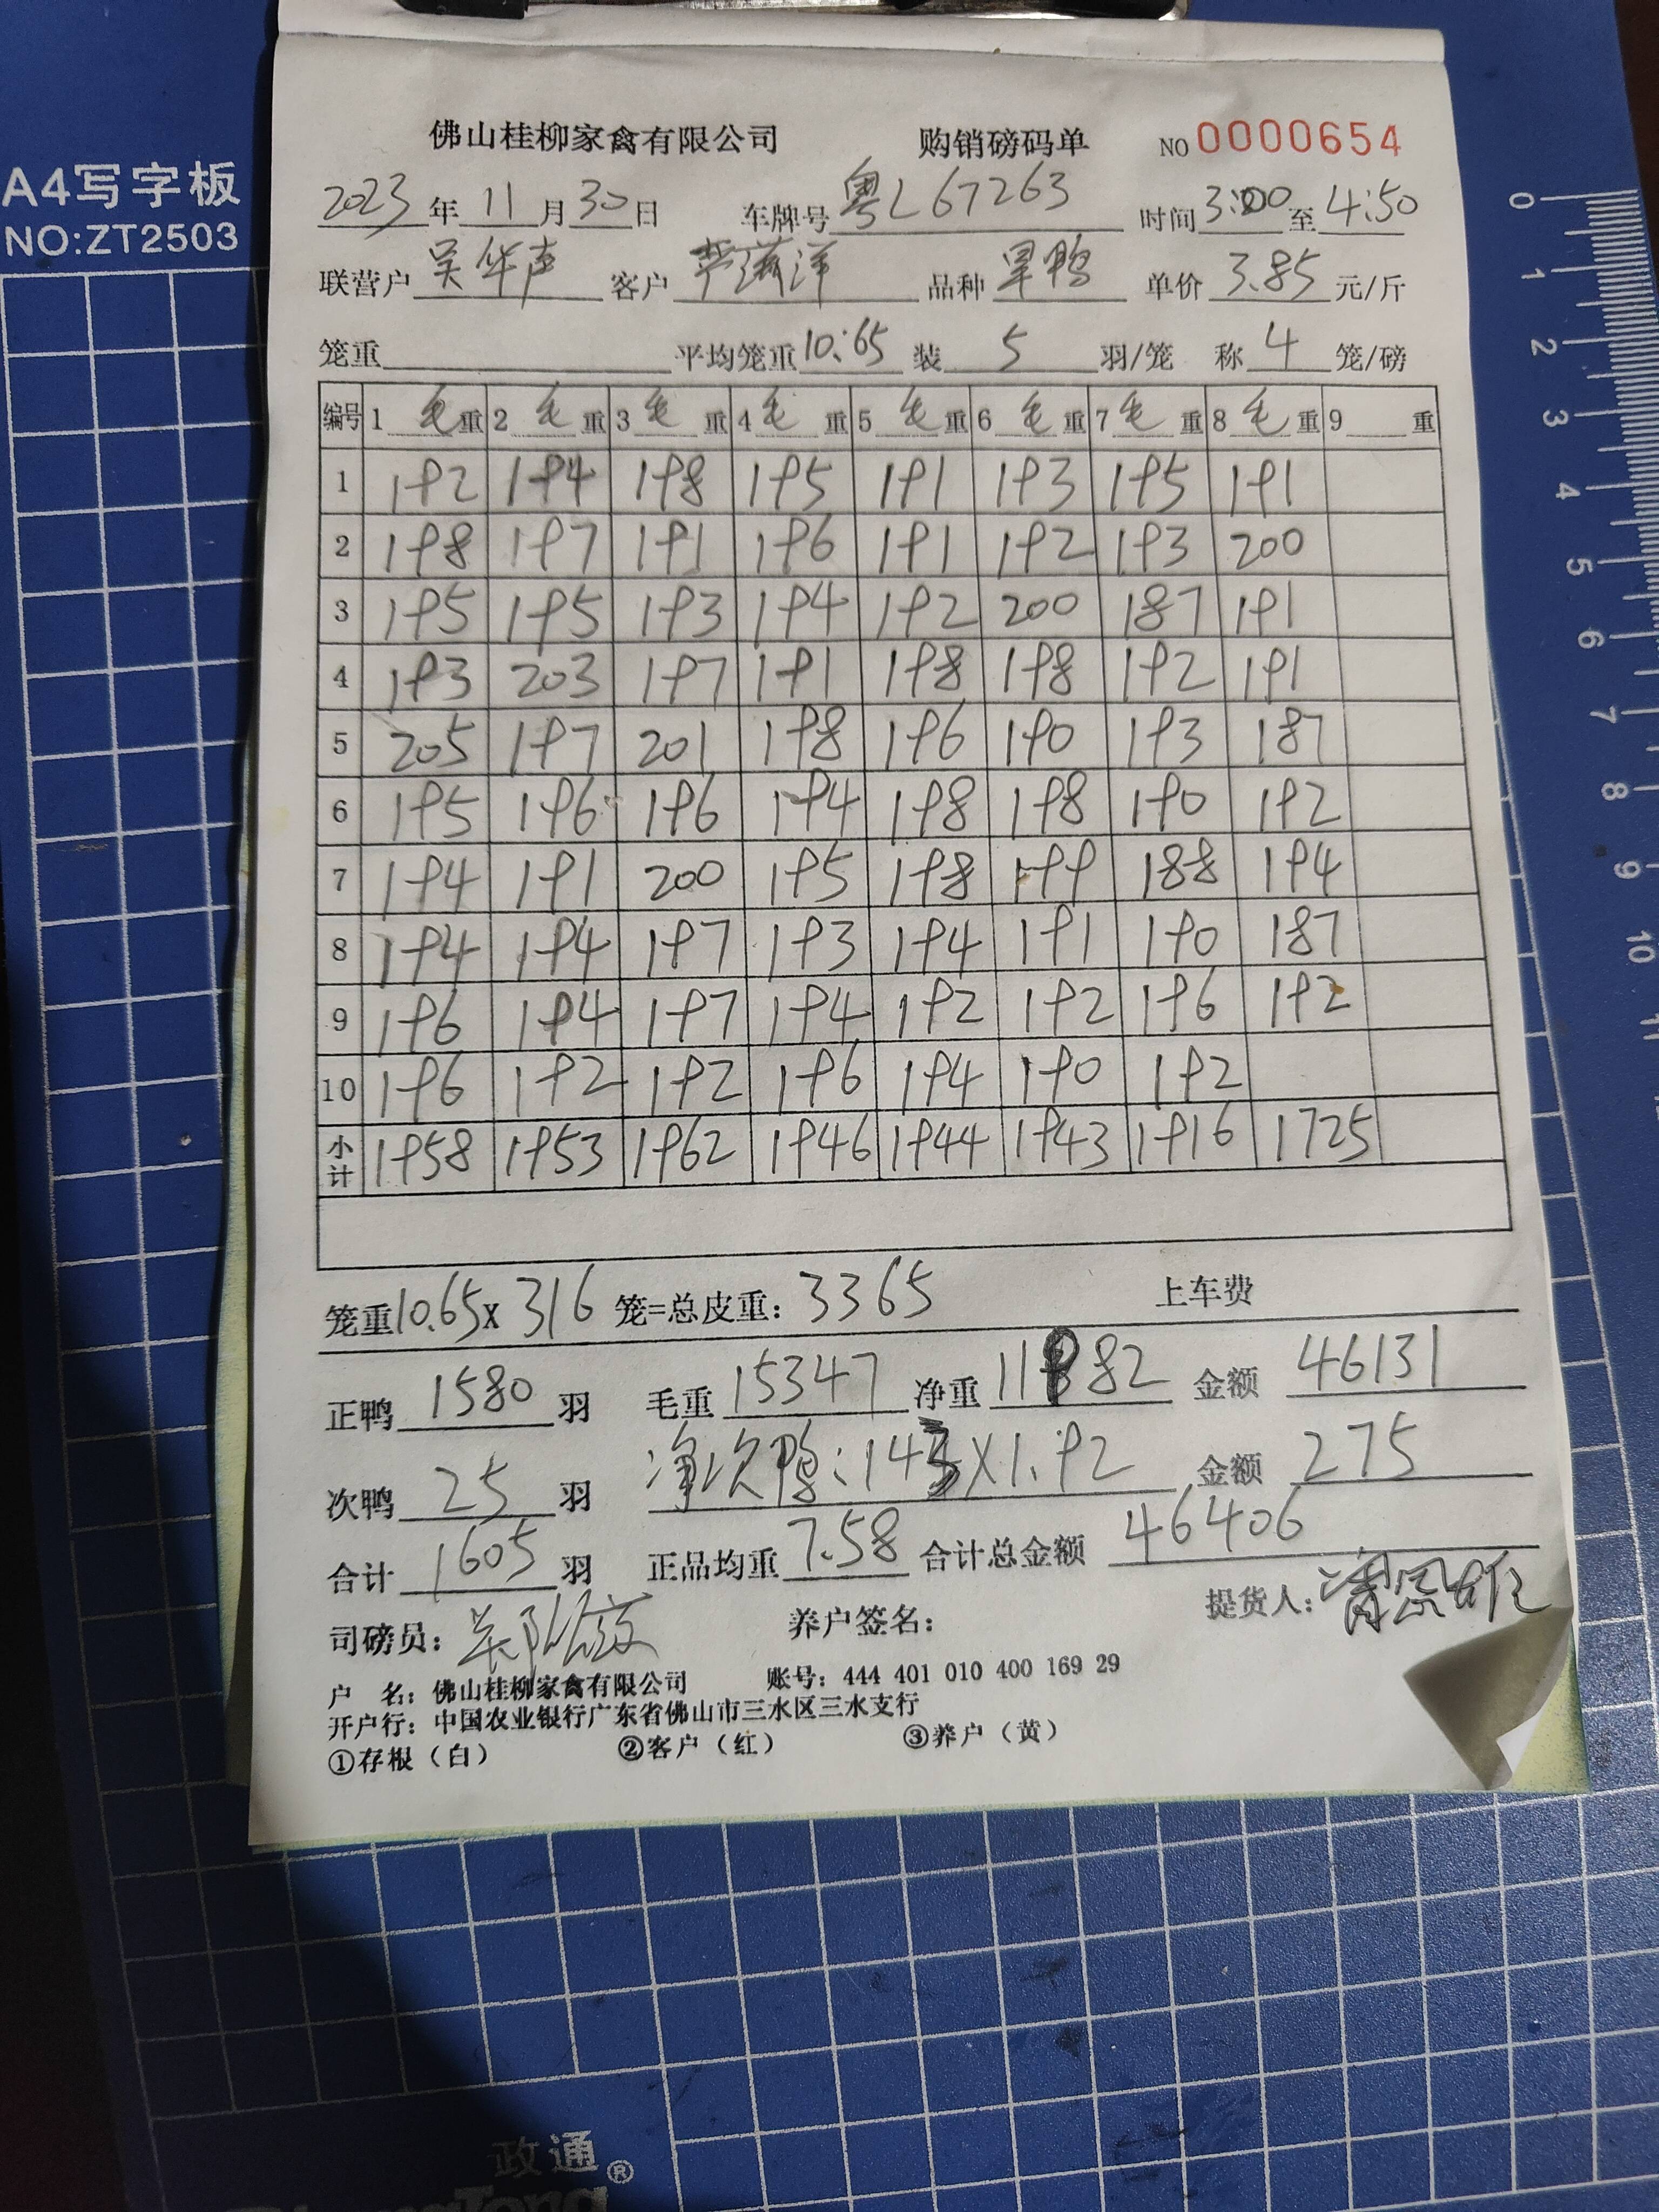 A4写字板
NO:ZT2503
佛山桂柳家禽有限公司 购销磅码单 NO 0000654
2023年11月30日 车牌号 粤L67263 时间 3:00 至 4:50
联营户 吴华声 客户 洋 品种 旱鸭 单价 3.85 元/斤
笼重 平均笼重 10.65 装 5 羽/笼 称 4 笼/磅
编号 1 毛重 2 毛重 3 毛重 4 毛重 5 毛重 6 毛重 7 毛重 8 毛重 9 重
1 192 194 198 195 191 193 195 191
2 198 197 191 196 191 192 193 200
3 195 195 193 194 192 200 187 191
4 193 203 197 191 198 198 192 191
5 205 197 201 198 196 190 193 187
6 195 196 196 194 198 198 190 192
7 194 191 200 195 198 199 188 194
8 194 194 197 193 194 191 190 187
9 196 194 197 194 192 192 196 192
10 196 192 192 196 194 190 192
小计 1958 1953 1962 1946 1944 1943 1916 1725
笼重 10.65 x 316 笼=总皮重: 3365 上车费
正鸭 1580 羽 毛重 15347 净重 11982 金额 46131
次鸭 25 羽 净次鸭:143X1.92 金额 275
合计 1605 羽 正品均重 7.58 合计总金额 46406
司磅员: 养户签名: 提货人:
户 名: 佛山桂柳家禽有限公司 账号: 444 401 010 400 169 29
开户行: 中国农业银行广东省佛山市三水区三水支行
①存根(白) ②客户(红) ③养户(黄)
0
1
2
3
4
5
6
7
8
9
10
政通®